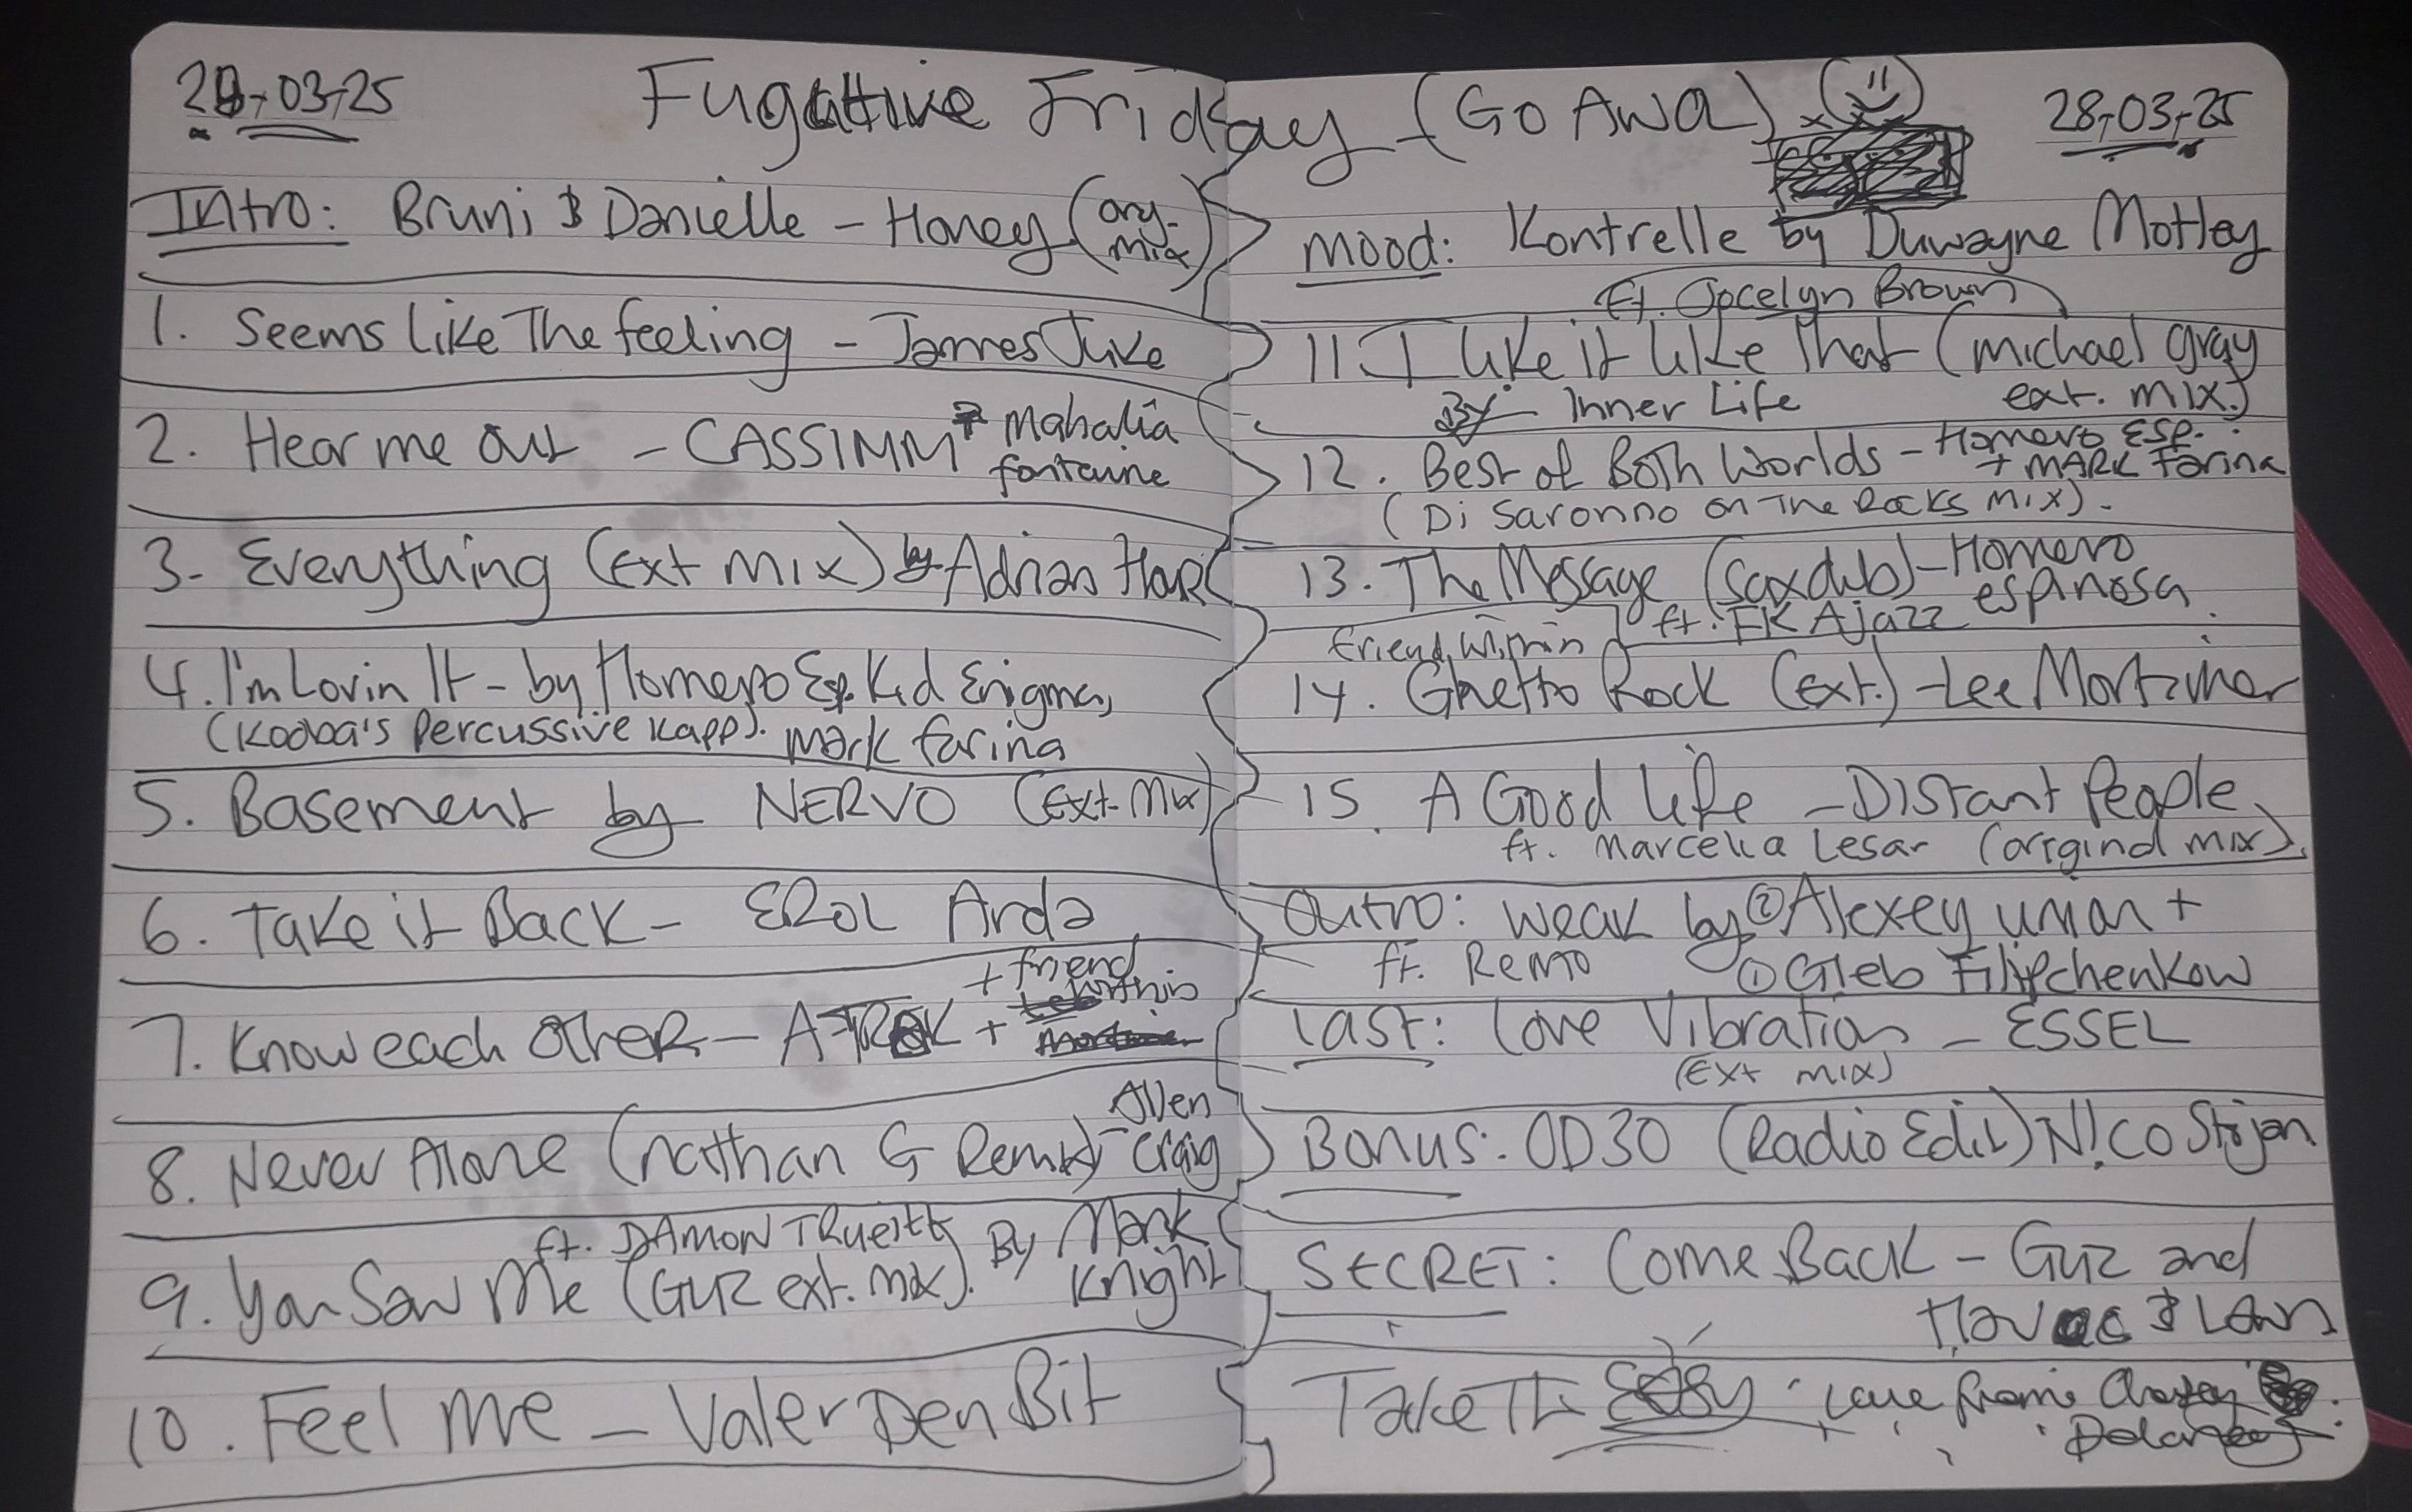 28-03-25 Fugative Friday (Go Awa). 28-03-25
Intro: Bruni & Danielle - Honey (org. mix)
1. Seems Like The feeling - James Juke
2. Hear me Out - CASSIMM + Mahalia fontaine
3- Everything (Ext Mix) by Adrian Hour
4. I'm Lovin It - by Homero Esp. Kid Enigma,
(Kooba's Percussive Kapp). Mark farina
5. Basement by NERVO (Ext. Mix)
6. Take it Back - EROL Arda
7. Know each Other - A-TRAK + friend within
8. Never Alone (nathan G Remix) - Allen Craig
ft. DAMON TRueitt
9. You Saw Me (GUZ ext. mix). By Mark Knight
10. Feel Me - Valer Den Bit
mood: Kontrelle by Duwayne Motley
ft. Jocelyn Brown
11. I Like it Like That (michael gray
By - Inner Life ext. mix.)
12. Best of Both Worlds - Homero Esp. + MARK Farina
(Di Saronno on The Rocks Mix).
13. The Message (saxdub) - Homero espinosa
ft. FK Ajazz
friend within
14. Ghetto Rock (Ext.) - Lee Mortimer
15. A Good Life - Distant People
ft. Marcelia Lesar (original mix).
Outro: Weak by ② Alexey union +
ft. Remo ① Gleb Filipchenkow
Last: Love Vibration - ESSEL
(Ext mix)
Bonus: OD30 (Radio Edit) N!CO Strijan
SECRET: Come Back - Guz and
Havoc & Lawn
Take It EASY Love from
Delaney